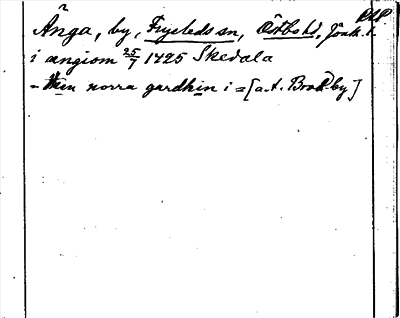 Ånga, by, Fryeleds sn, Östbo hd, Jönk. l.
i ængiom 25/7 1425 Skedala
- then norra gardhin i = [a. t. Bondby]